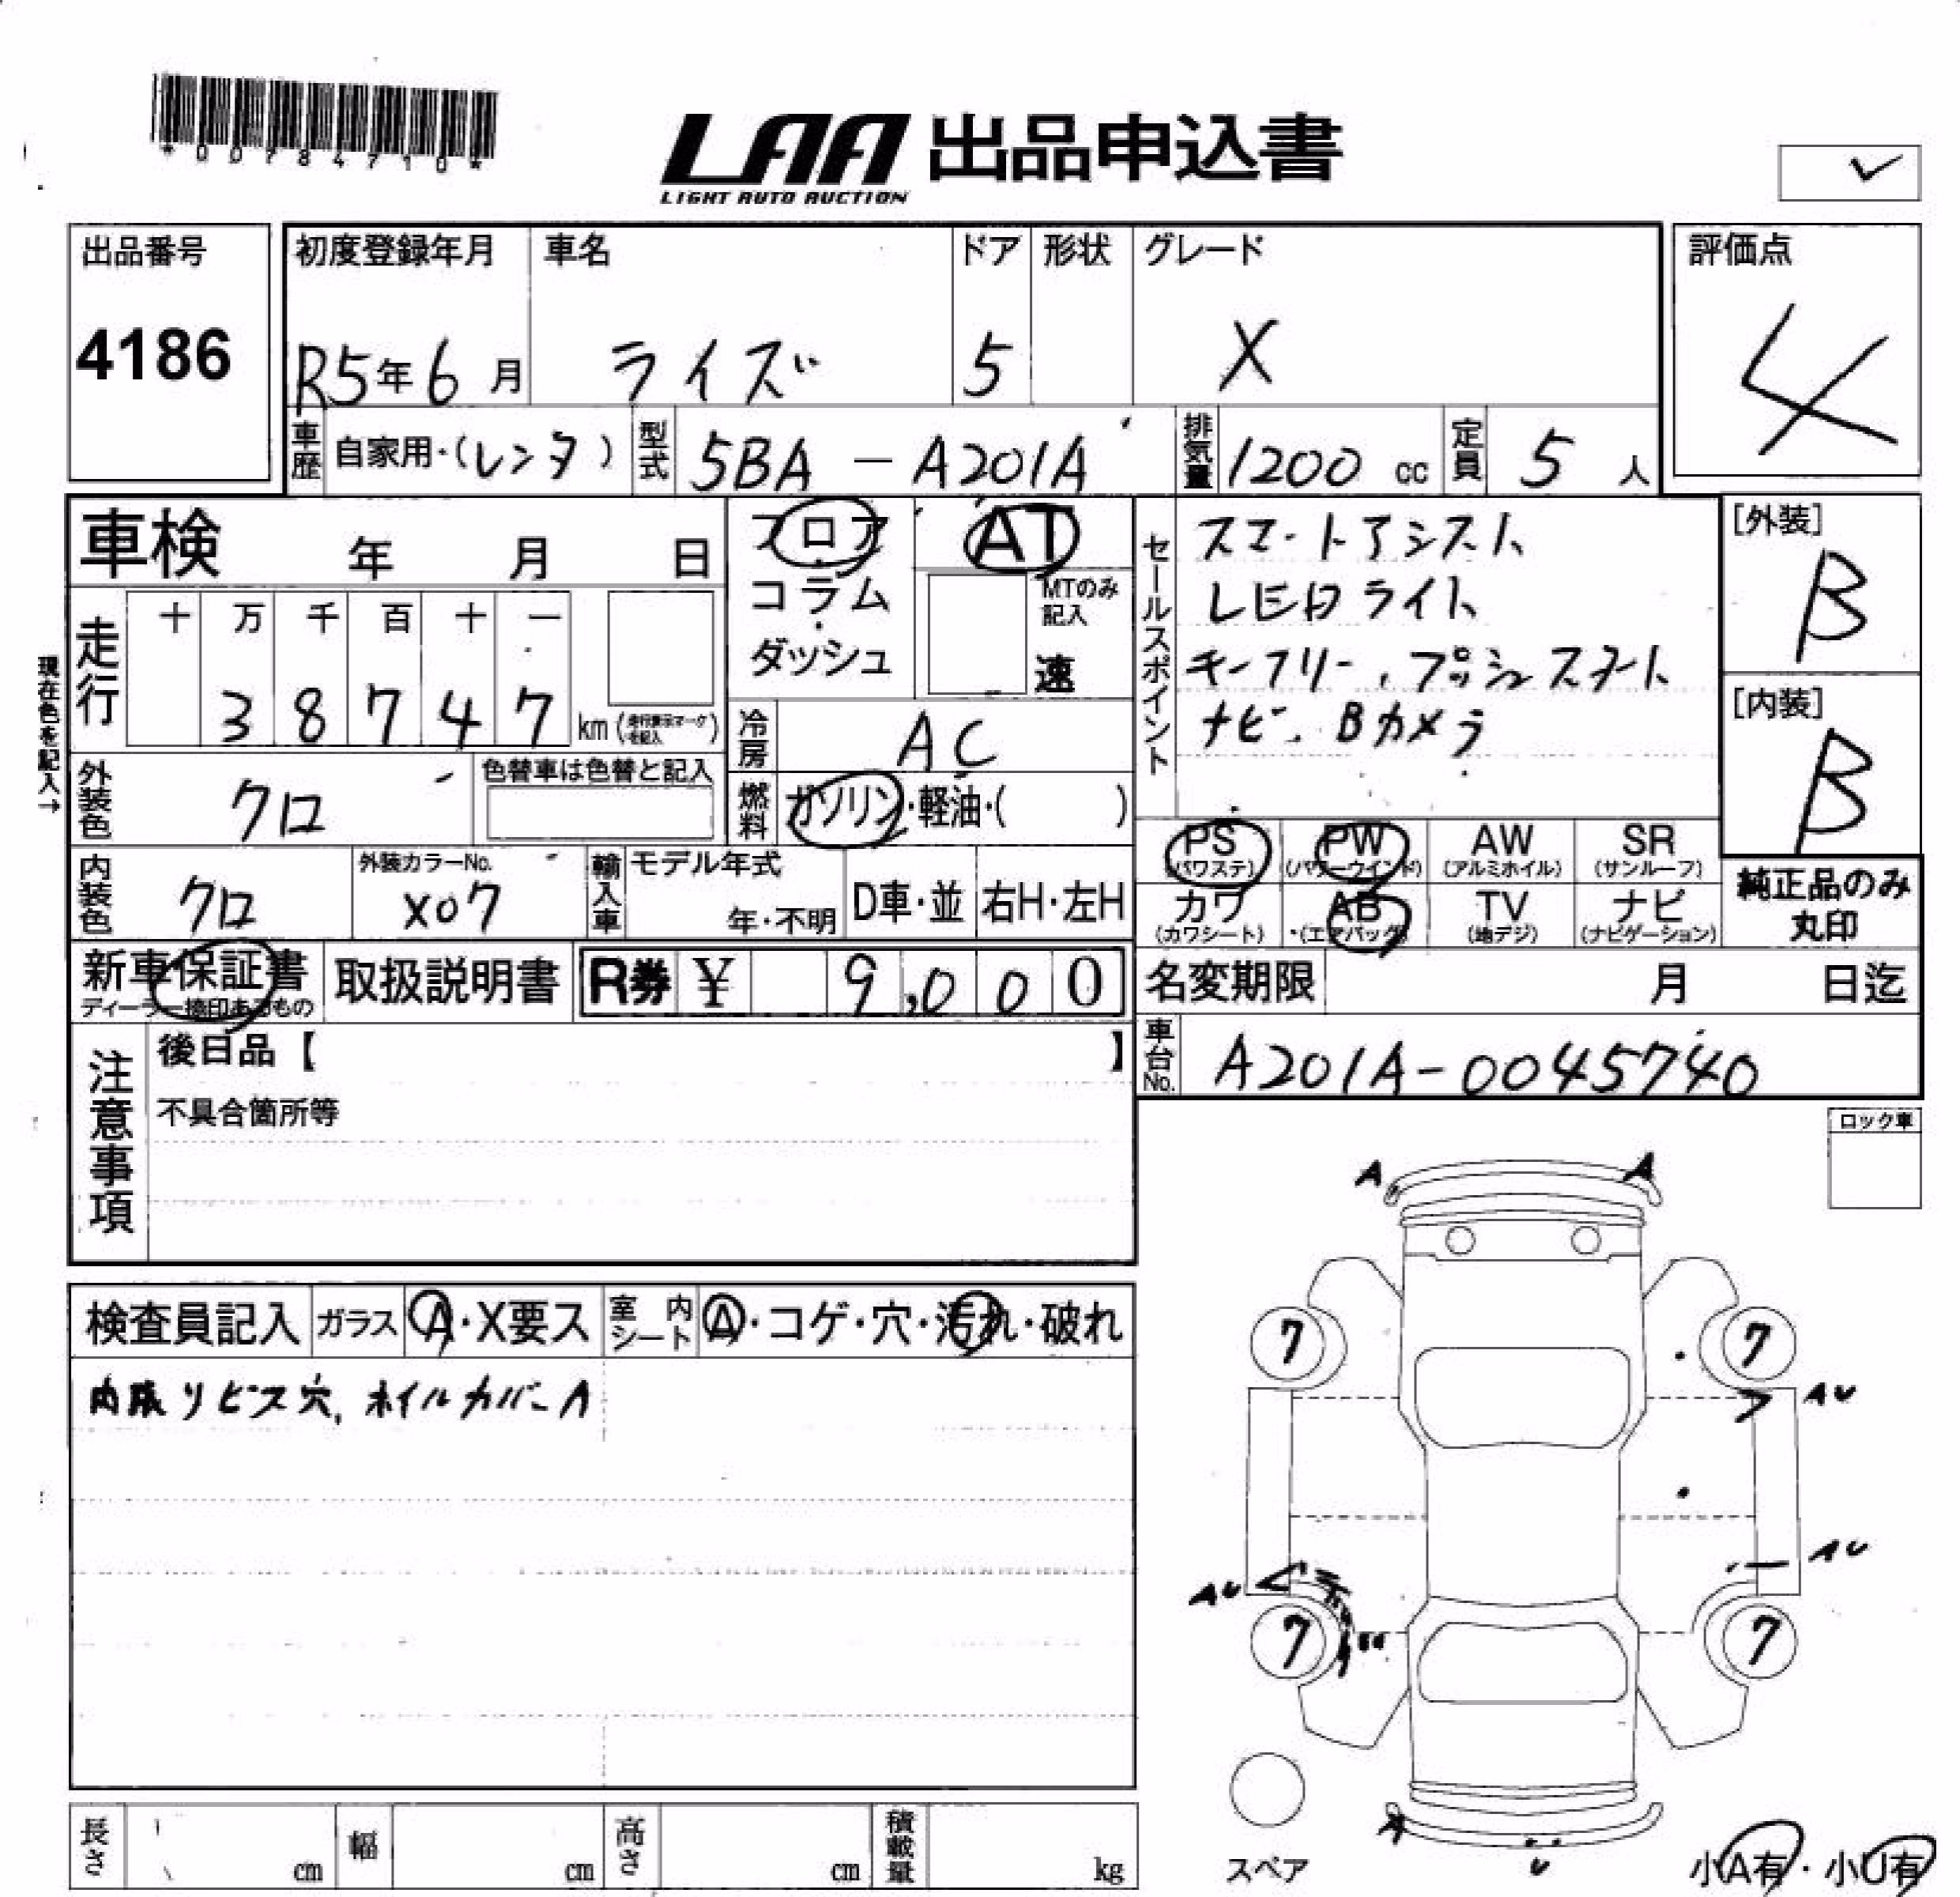 *00784710*
LAA 出品申込書
LIGHT AUTO AUCTION
✓
出品番号 初度登録年月 車名 ドア 形状 グレード 評価点
4186 R5年6月 ライズ 5 X 4
車歴 自家用・(レンタ) 型式 5BA - A201A 排気量 1200 cc 定員 5人
車検 年 月 日
フロア AT
コラム MTのみ記入
ダッシュ 速
走行 十 万 千 百 十 一
3 8 7 4 7 km (走行表示マークを記入)
現在色を記入→
冷房 AC
外装色 クロ 色替車は色替と記入
燃料 ガソリン・軽油・( )
セールスポイント
スマートアシスト
LEDライト
キーフリー、プッシュスタート
ナビ. Bカメラ
[外装]
B
[内装]
B
PS PW AW SR
(パワステ) (パワーウインド) (アルミホイル) (サンルーフ)
カワ AB TV ナビ
(カワシート) (エアバッグ) (地デジ) (ナビゲーション)
純正品のみ
丸印
内装色 クロ 外装カラーNo. X07 輸入車 モデル年式 年・不明 D車・並 右H・左H
新車保証書 取扱説明書 R券 ¥ 9,000
ディーラー捺印あるもの
名変期限 月 日迄
車台No. A201A-0045740
注意事項
後日品【 】
不具合箇所等
ロック車
検査員記入 ガラス A・X要ス 室内シート A・コゲ・穴・汚れ・破れ
内張りビス穴、ホイルカバーA
A A
7 7
AU
AU
AU
7 7
A U
スペア
小A有・小U有
長さ cm 幅 cm 高さ cm 積載量 kg